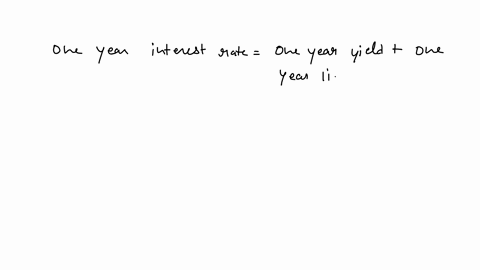 one year interest rate = one year yield + one
year li